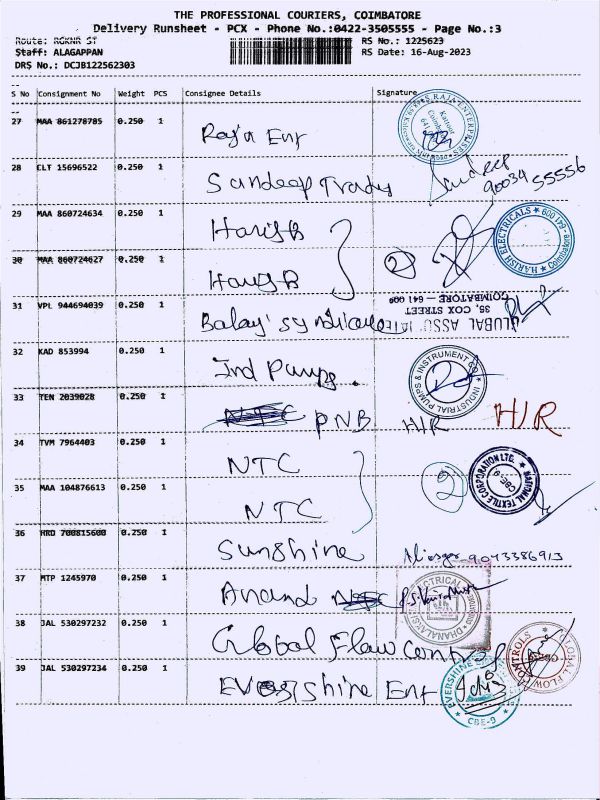 THE PROFESSIONAL COURIERS, COIMBATORE
Delivery Runsheet - PCX - Phone No.:0422-3505555 - Page No.:3
Route: RGKNR ST
RS No.: 1225623
Staff: ALAGAPPAN
RS Date: 16-Aug-2023
DRS No.: DCJB122562303
S No Consignment No Weight PCS Consignee Details Signature
27 MAA 861278785 0.250 1 Raja Ent
28 CLT 15696522 0.250 1 Sandeep Tradg Sandeep 90034 55556
29 MAA 860724634 0.250 1 Harish 2 HARISH ELECTRICALS Coimbatore - 641 009
30 MAA 860724627 0.250 1 Harish
31 VPL 944694039 0.250 1 Balaji Syndicate
35, COX STREET
COIMBATORE - 641 009
32 KAD 853994 0.250 1 Ind Pumps. INDUSTRIAL PUMPS & INSTRUMENT CO
33 TEN 2039028 0.250 1 PNB H/R H/R
34 TVM 7964403 0.250 1 NTC 2 NATIONAL TEXTILE CORPORATION LTD. CBE-9
35 MAA 104876613 0.250 1 NTC
36 HRD 700815600 0.250 1 Sunshine 9043386913
37 MTP 1245970 0.250 1 Anand
38 JAL 530297232 0.250 1 Global Flow Control
39 JAL 530297234 0.250 1 Evershine Ent CBE-9